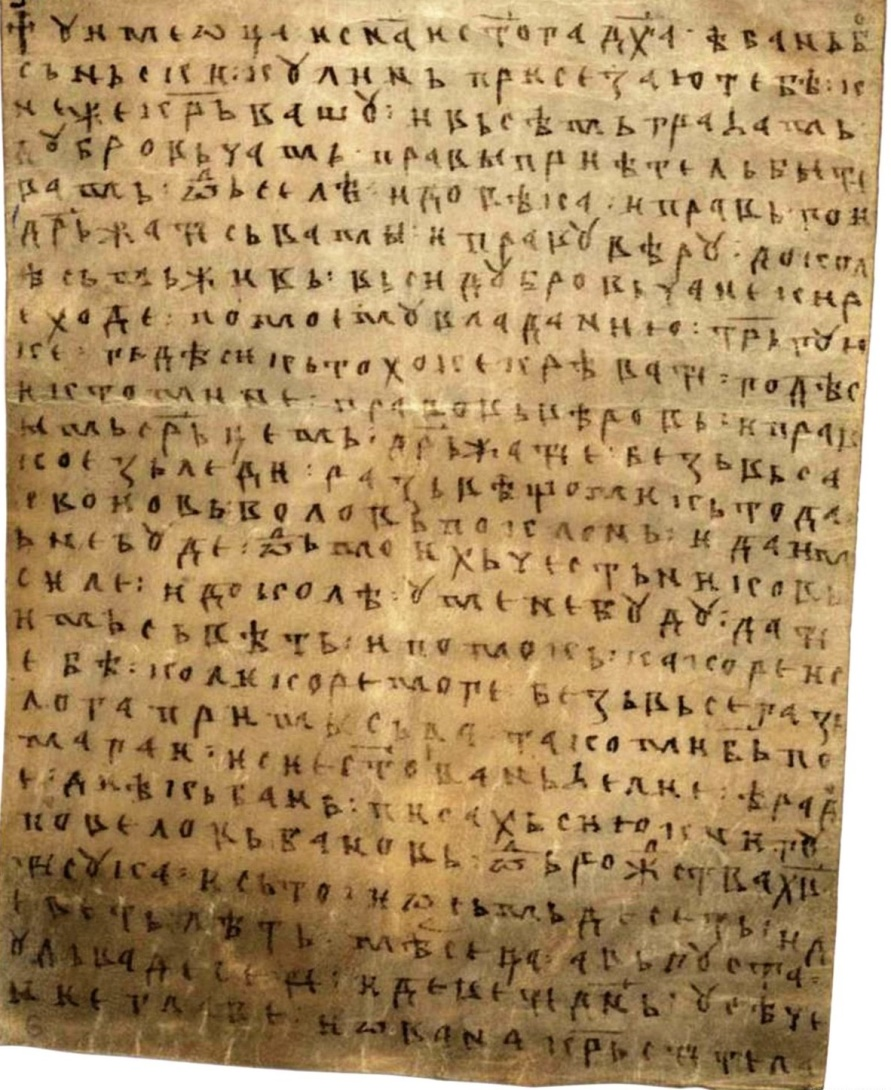 † ꙋ име ѡца и сна и стога дха· ѣ бань б
сьньски: кꙋлинь присезаю тебѣ: к
неже крьвашꙋ: и вьсѣмь граꙉамь
дꙋбровьчамь правы приѣтель быти
вамь: ѿь селѣ: и довѣка: и правь гои
дрьжати сь вамы: и правꙋ вѣрꙋ: докол
ѣ сьмь живь: вьси дꙋбровьчане кир
е ходе: по моемꙋ владанию: трьгꙋю
ке: гьдѣ си кьто хоке крѣвати: годѣс
и кто мине: правовь вѣровь: и прав
имь срьцемь: дрьжати е: безь вьса
кое зьледи: разьвѣ що ми кьто да
е своновь воловь поклонь: и даим
ь не бꙋде: ѿь моихь чьстьниковь
силе: и доколѣ: ꙋ мене бꙋдꙋ: дати
имь сьвѣть: и помокь: какоре и с
ебѣ: коликоре моге безь вьсега зь
лога примьсьла: тако ми бь по
магаи: и сие сто ваньꙉелие: ѣ рад
е диѣкь бань: писахь сию книгꙋ
повеловь бановь: ѿь рожства хв
тисꙋка: и сьто: и ѡсьмьдесеть: и д
еветь лѣть: мѣсеца: авьгꙋста:
ꙋ дьвадесети: и девети днь: ꙋсѣче
ние главе: иѡвана крьстителa